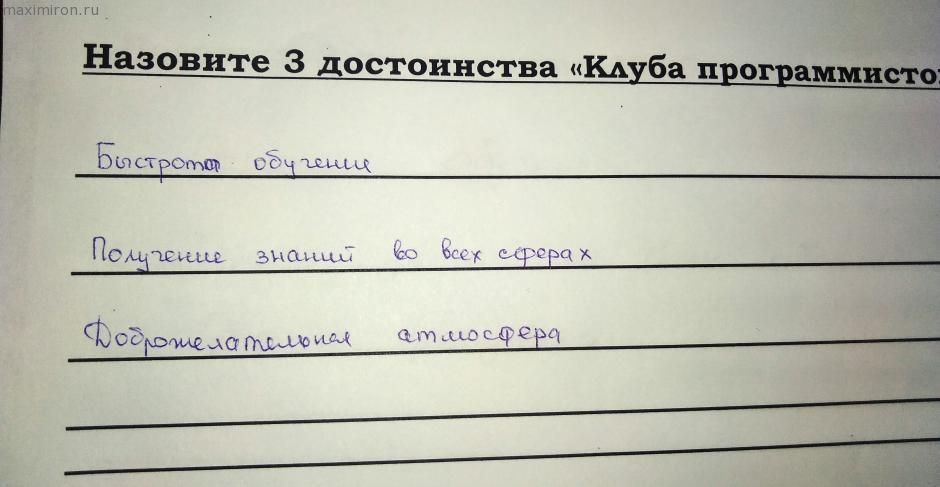 maximiron.ru
Назовите 3 достоинства «Клуба программистов
Быстрота обучение
Получение знаний во всех сферах
Доброжелательная атмосфера